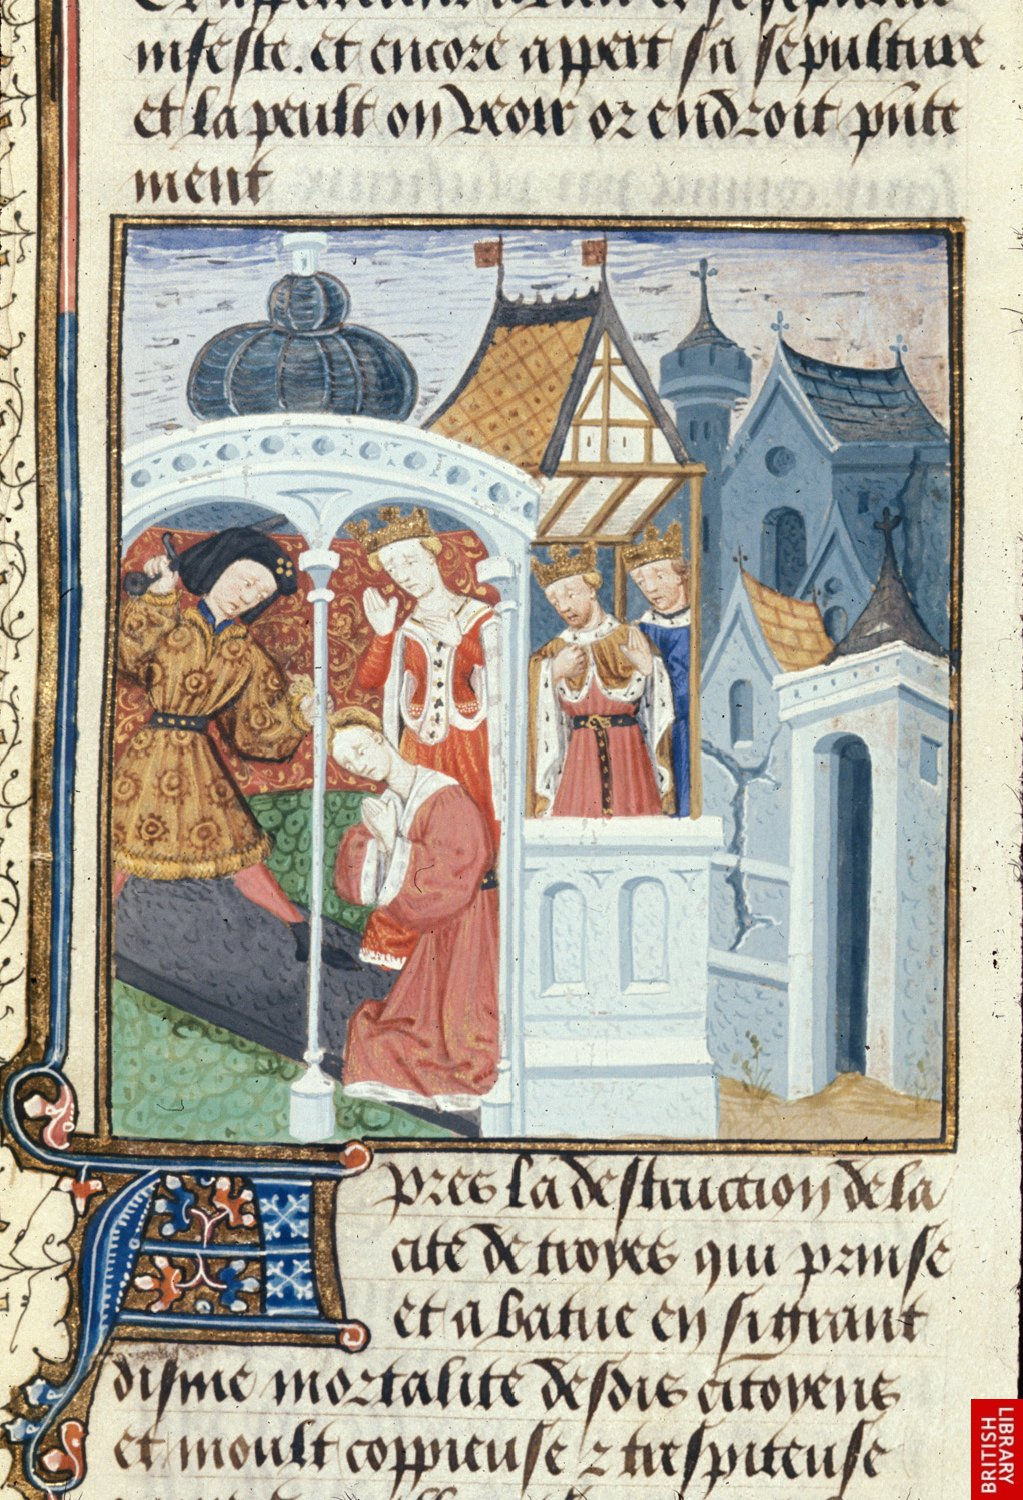 infeste. et encore appert sa sepulture.
et la peult on veoir or endroit pnte
ment
Apres la destruction de la
cite de troyes qui prinse
et abatue en si grant
disme mortalite desdis citoyens
et moult coppieuse & trespiteuse
BRITISH
LIBRARY